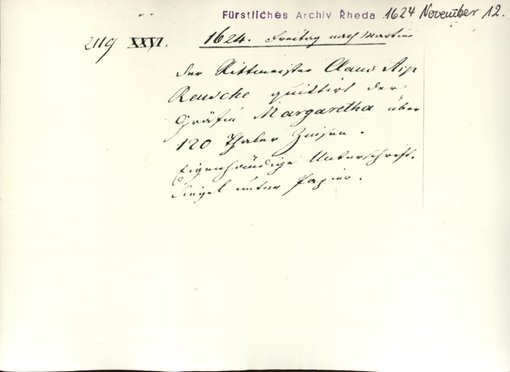 Fürstliches Archiv Rheda 1624 November 12.
2119 XXVI. 1624. Freitag nach Martini
Der Rittmeister Claus
Reusche quittirt der
Gräfin Margaretha über
120 Thaler Zinsen.
Eigenhändige Unterschrift.
Siegel unter Papier.